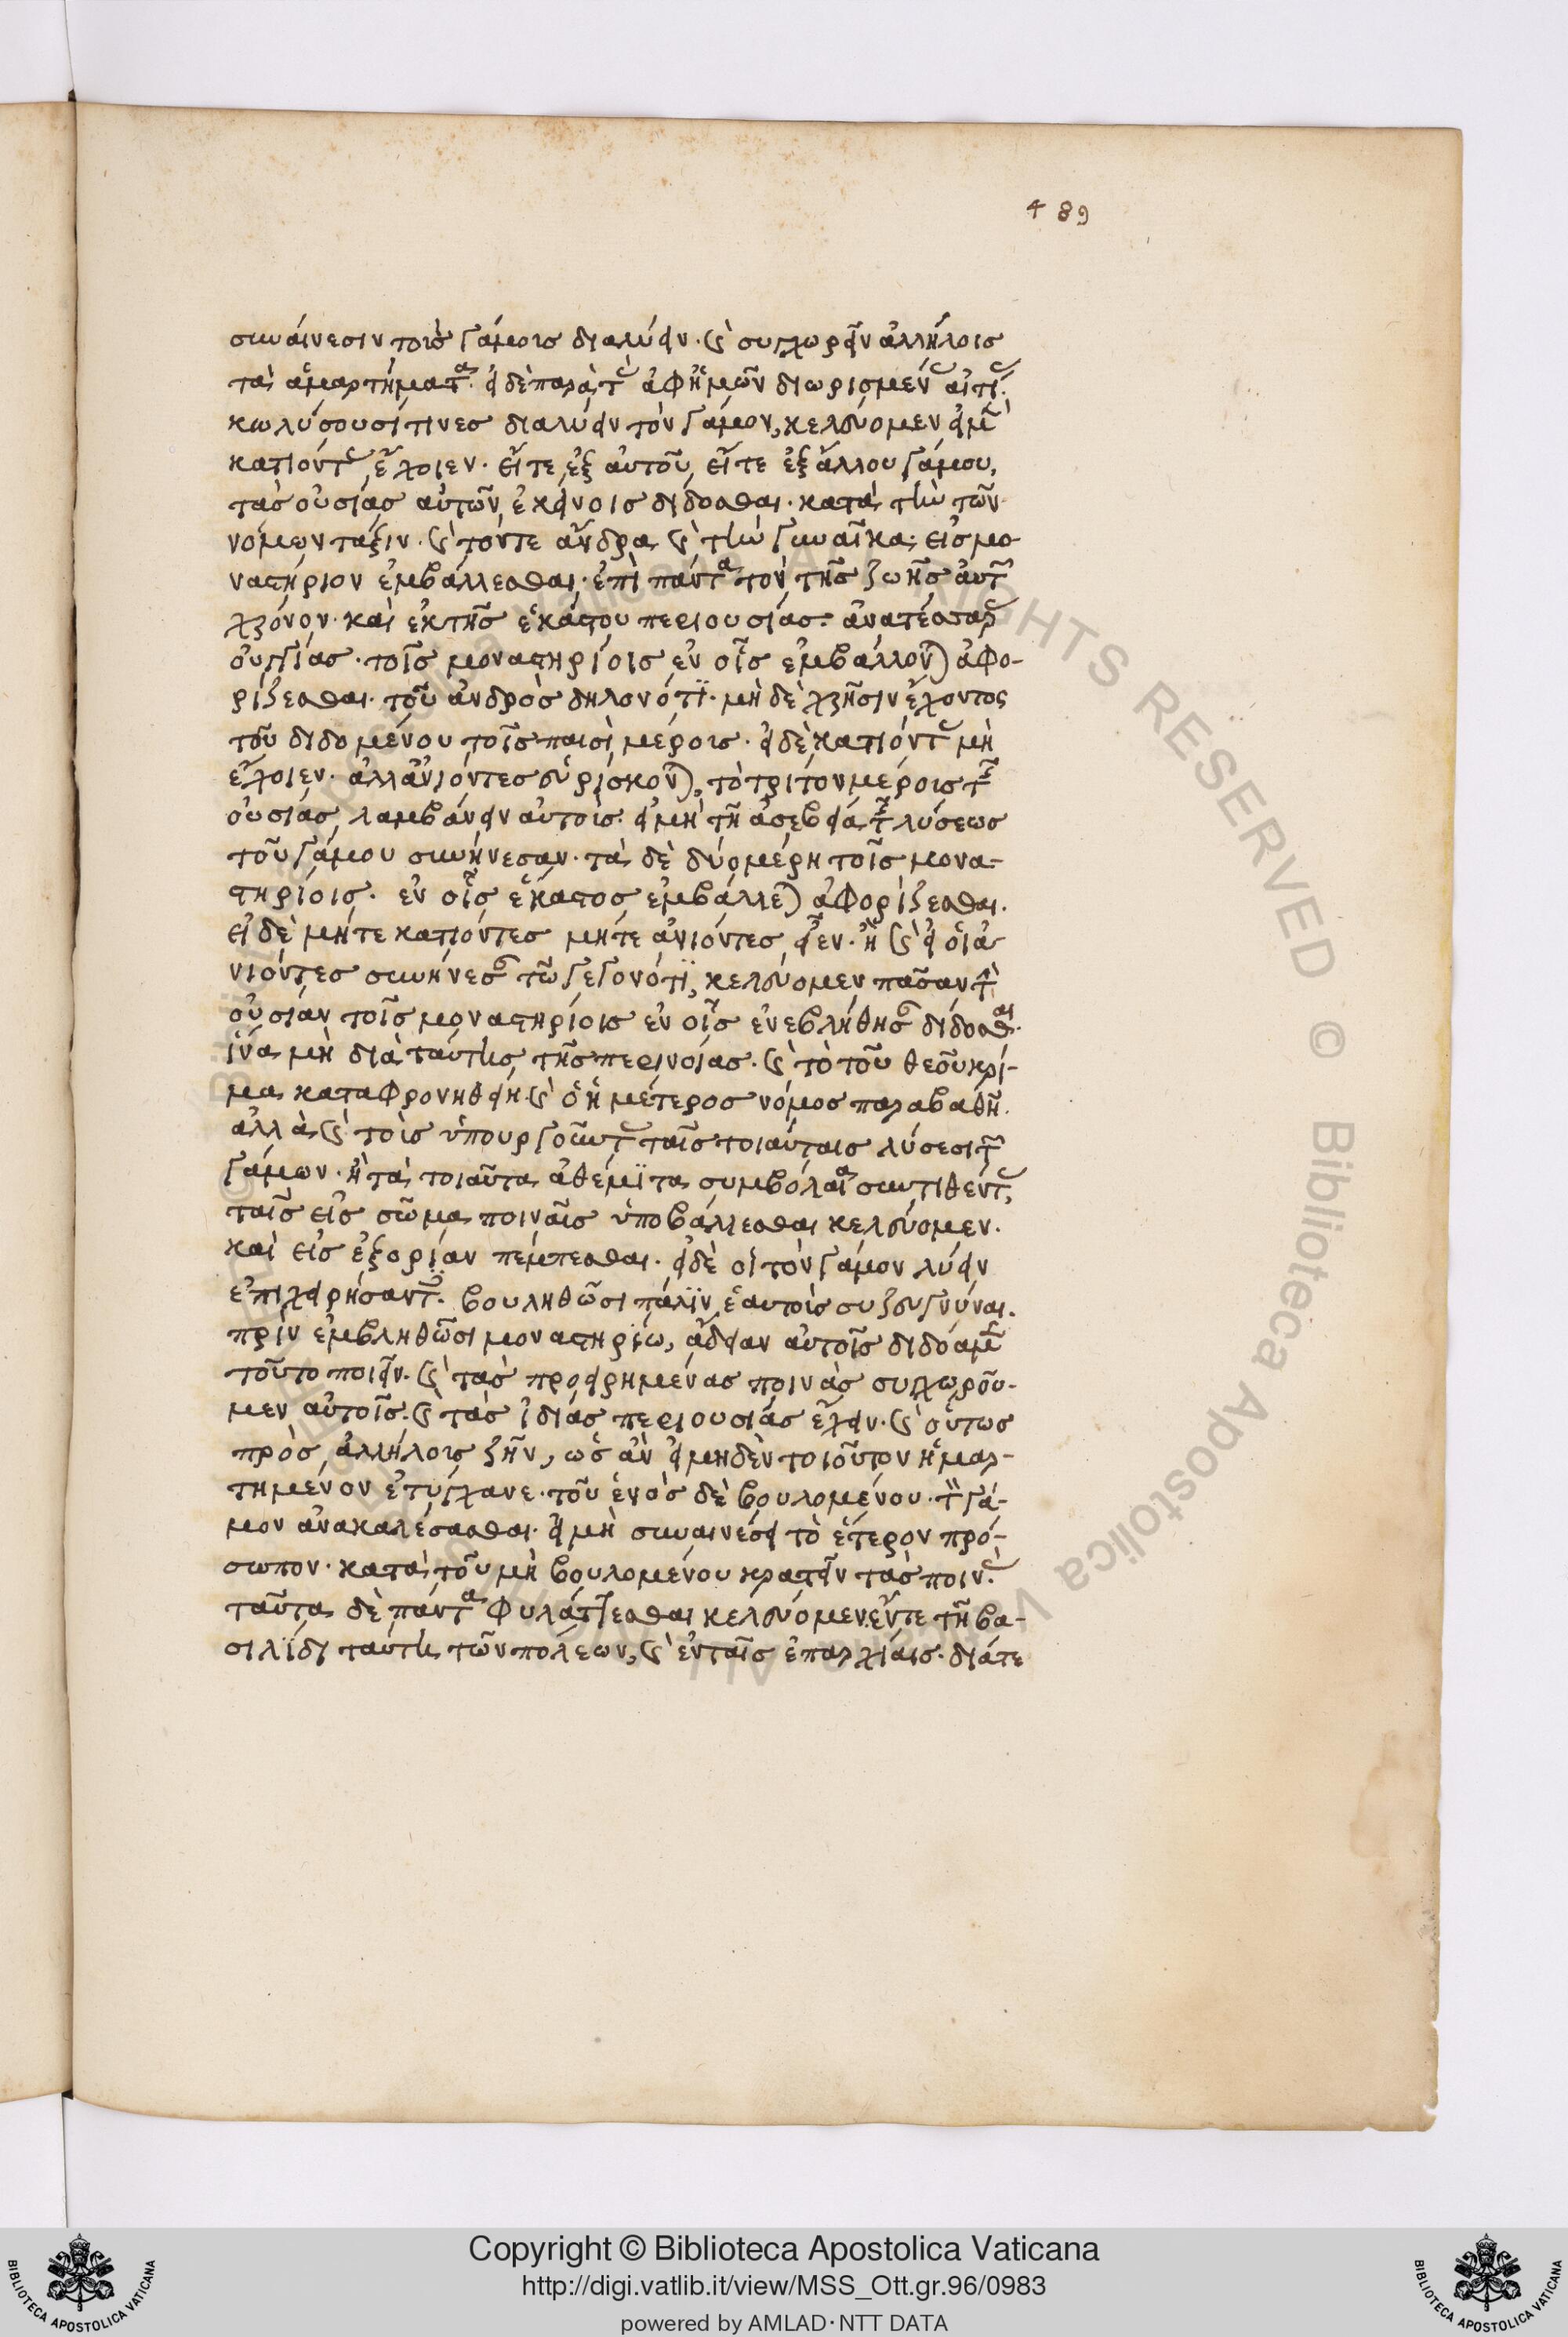 489
συναίνεσιν τοὺς γάμους διαλύειν· καὶ συγχωρεῖν ἀλλήλοις
τὰ ἁμαρτήματα· εἰ δὲ παρὰ τὰς ἀφ' ἡμῶν διωρισμένας αἰτίας
κωλύσουσί τινες διαλύειν τὸν γάμον, κελεύομεν εἰ μὲν
κατιόντας ἔχοιεν· εἴτε ἐξ αὐτοῦ, εἴτε ἐξ ἄλλου γάμου,
τὰς οὐσίας αὐτῶν ἐκείνοις δίδοσθαι· κατὰ τὴν τῶν
νόμων τάξιν· καὶ τόντε ἄνδρα καὶ τὴν γυναῖκα εἰς μο-
ναστήριον ἐμβάλλεσθαι· ἐπὶ πάντα τὸν τῆς ζωῆς αὐτῶν
χρόνον· καὶ ἐκ τῆς ἑκάστου περιουσίας ἀνὰ τέσσαρας
οὐγγίας· τοῖς μοναστηρίοις ἐν οἷς ἐμβάλλονται ἀφο-
ρίζεσθαι· τοῦ ἀνδρὸς δηλονότι· μὴ δὲ χρῆσιν ἔχοντος
τοῦ διδομένου τοῖς παισὶ μέρους· εἰ δὲ κατιόντας μὴ
ἔχοιεν· ἀλλ' ἀνιόντες εὑρίσκονται, τὸ τρίτον μέρος τῆς
οὐσίας λαμβάνειν αὐτούς· εἰ μὴ τῇ ἀσεβείᾳ τῆς λύσεως
τοῦ γάμου συνήνεσαν· τὰ δὲ δύο μέρη τοῖς μονα-
στηρίοις· ἐν οἷς ἕκαστος ἐμβάλλεται ἀφορίζεσθαι.
εἰ δὲ μήτε κατιόντες μήτε ἀνιόντες εἶεν· ἢ καὶ εἰ οἱ ἀ-
νιόντες συνήνεσαν τῷ γεγονότι, κελεύομεν πᾶσαν τὴν
οὐσίαν τοῖς μοναστηρίοις ἐν οἷς ἐνεβλήθησαν δίδοσθαι·
ἵνα μὴ διὰ ταύτης τῆς περινοίας· καὶ τὸ τοῦ θεοῦ κρί-
μα καταφρονηθείη· καὶ ὁ ἡμέτερος νόμος παραβαθῇ.
ἀλλὰ καὶ τοὺς ὑπουργοῦντας ταῖς τοιαύταις λύσεσι τῶν
γάμων· ἢ τὰ τοιαῦτα ἀθέμιτα συμβόλαια συντιθέντας,
ταῖς εἰς σῶμα ποιναῖς ὑποβάλλεσθαι κελεύομεν.
καὶ εἰς ἐξορίαν πέμπεσθαι· εἰ δὲ οἱ τὸν γάμον λύειν
ἐπιχειρήσαντες βουληθῶσι πάλιν ἑαυτοὺς συζευγνύναι.
πρὶν ἐμβληθῶσι μοναστηρίῳ, ἄδειαν αὐτοῖς δίδομεν
τοῦτο ποιεῖν· καὶ τὰς προειρημένας ποινὰς συγχωροῦ-
μεν αὐτοῖς· καὶ τὰς ἰδίας περιουσίας ἔχειν· καὶ οὕτως
πρὸς ἀλλήλους ζῆν, ὡς ἂν εἰ μηδὲν τοιοῦτον ἡμαρ-
τημένον ἐτύγχανε· τοῦ ἑνὸς δὲ βουλομένου τὸν γά-
μον ἀνακαλέσασθαι· εἰ μὴ συναινέσει τὸ ἕτερον πρό-
σωπον· κατὰ τοῦ μὴ βουλομένου κρατεῖν τὰς ποινάς·
ταῦτα δὲ πάντα φυλάττεσθαι κελεύομεν ἔν τε τῇ βα-
σιλίδι ταύτῃ τῶν πόλεων, καὶ ἐν ταῖς ἐπαρχίαις· διά τε
Copyright © Biblioteca Apostolica Vaticana
http://digi.vatlib.it/view/MSS_Ott.gr.96/0983
powered by AMLAD·NTT DATA